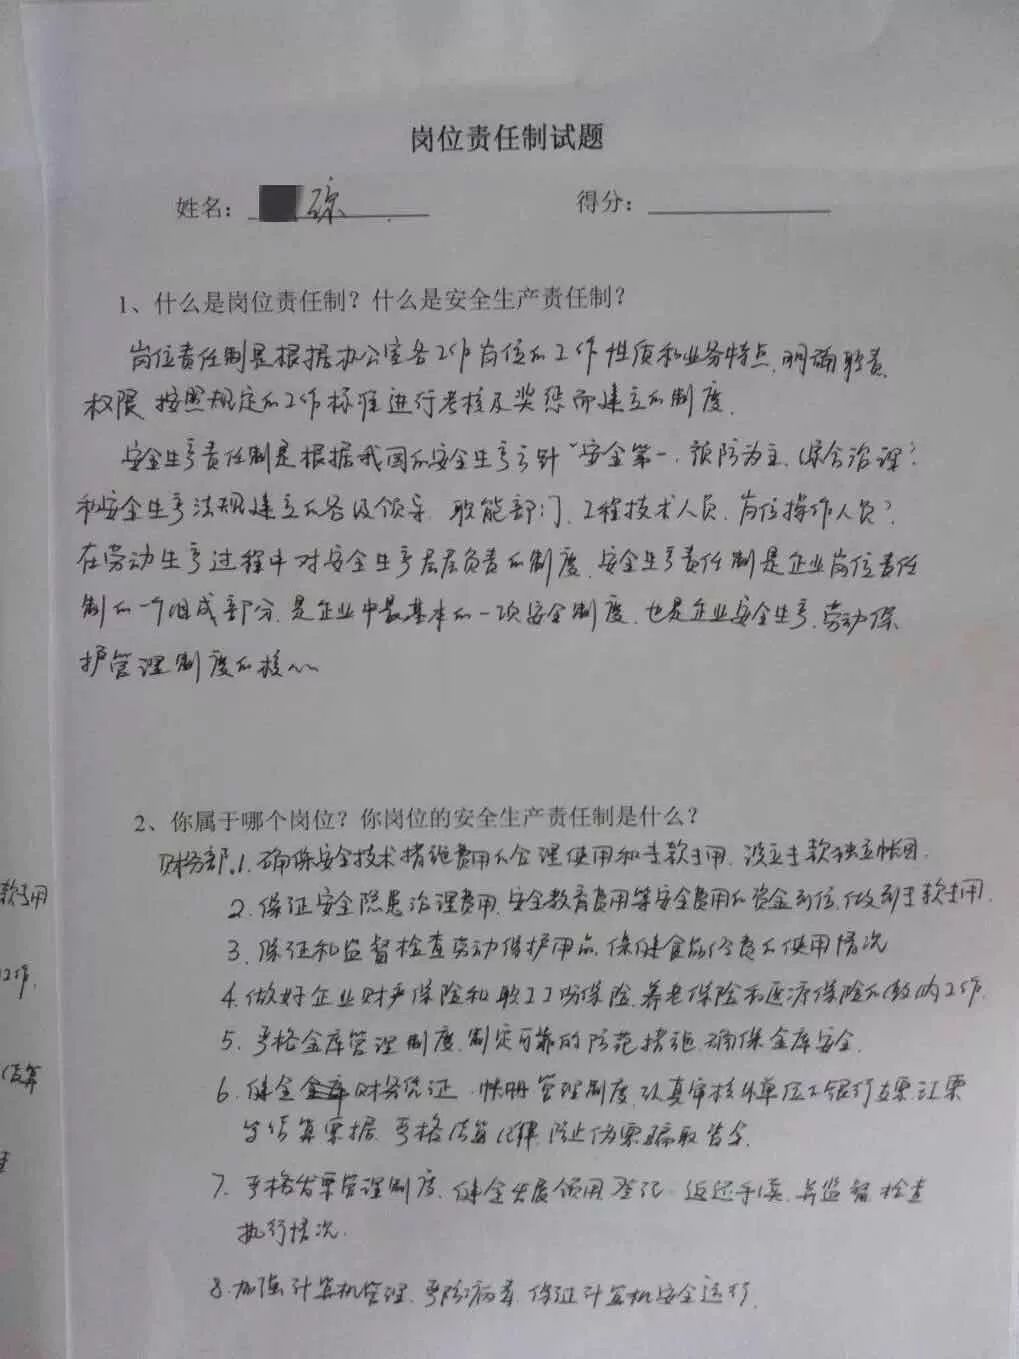 岗位责任制试题
姓名： 琼 得分：
1、什么是岗位责任制？什么是安全生产责任制？
岗位责任制是根据办公室各工作岗位的工作性质和业务特点，明确职责、
权限，按照规定的工作标准进行考核及奖惩而建立的制度。
安全生产责任制是根据我国的安全生产方针“安全第一、预防为主、综合治理”
和安全生产法规建立的各级领导、职能部门、工程技术人员、岗位操作人员
在劳动生产过程中对安全生产层层负责的制度。安全生产责任制是企业岗位责任
制的一个组成部分，是企业中最基本的一项安全制度，也是企业安全生产、劳动保
护管理制度的核心
2、你属于哪个岗位？你岗位的安全生产责任制是什么？
财务部。1、确保安全技术措施费用的合理使用和专款专用，设立专款独立帐
2、保证安全隐患治理费用、安全教育费用等安全费用的资金到位，做到专款专用。
3、保证和监督检查劳动保护用品、保健食品经费的使用情况
4、做好企业财产保险和职工工伤保险、养老保险和医疗保险的缴纳工作。
5、严格金库管理制度，制定可靠的防范措施，确保金库安全。
6、健全财务凭证、帐册管理制度，认真审核外单位的银行支票、汇票
等结算票据，严格结算纪律，防止伪票骗取资金。
7、严格发票管理制度，健全发票领用登记、返还手续，并监督检查
执行情况。
8、加强计算机管理，严防病毒，保证计算机安全运行。
款专用
工作。
结算